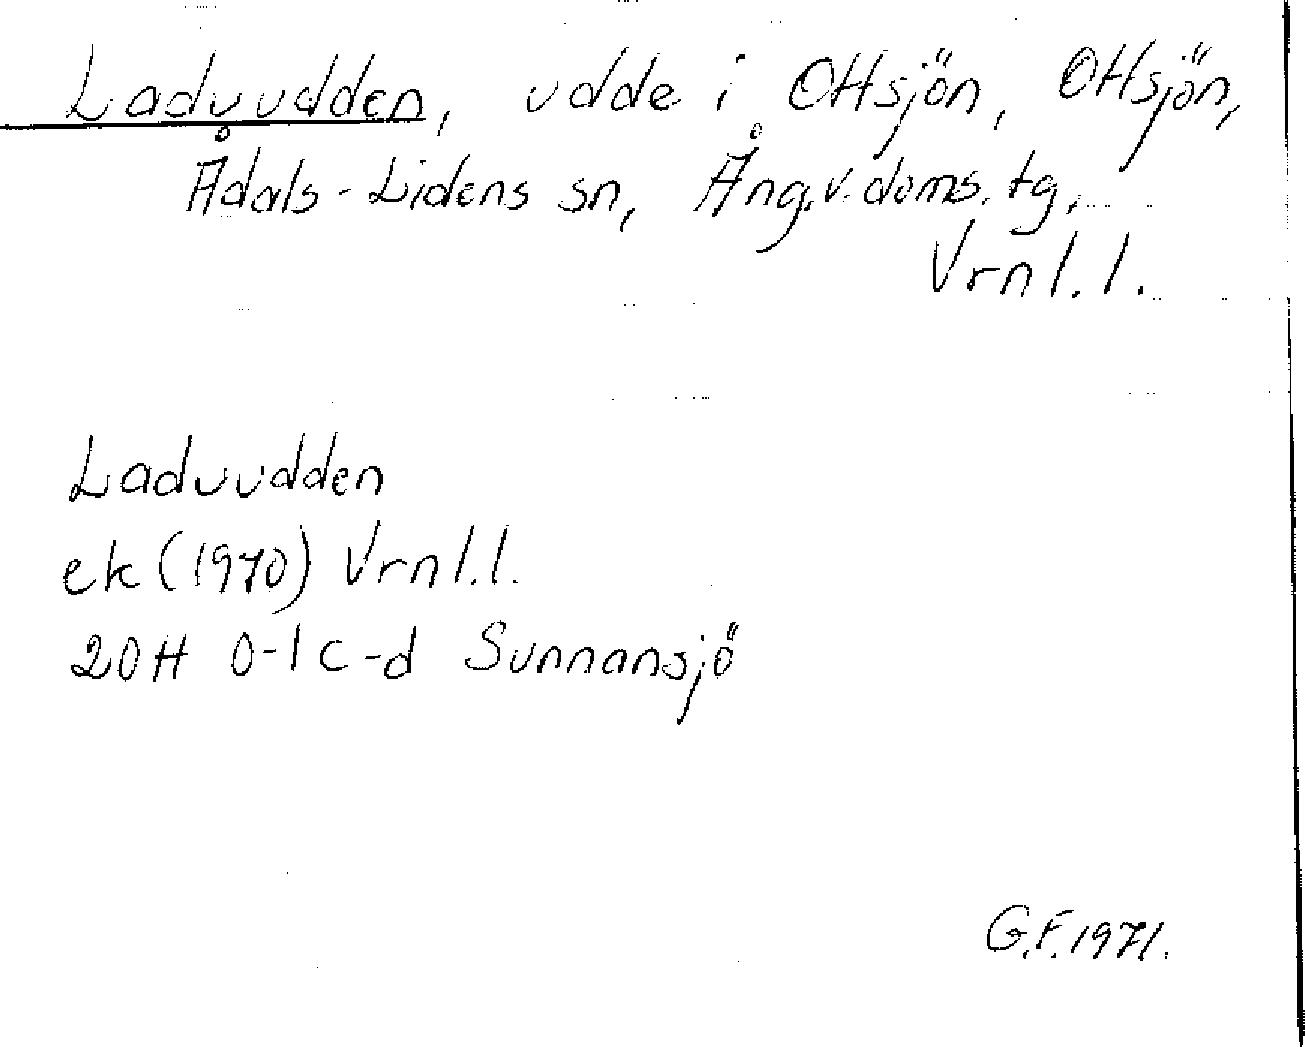 Laduudden, udde i Ottsjön, Ottsjön,
Ådals-Lidens sn, Ång.v.doms.tg,
Vrnl.l.
Laduudden
ek (1970) Vrnl.l.
20H 0-1c-d Sunnansjö
G.F.1971.